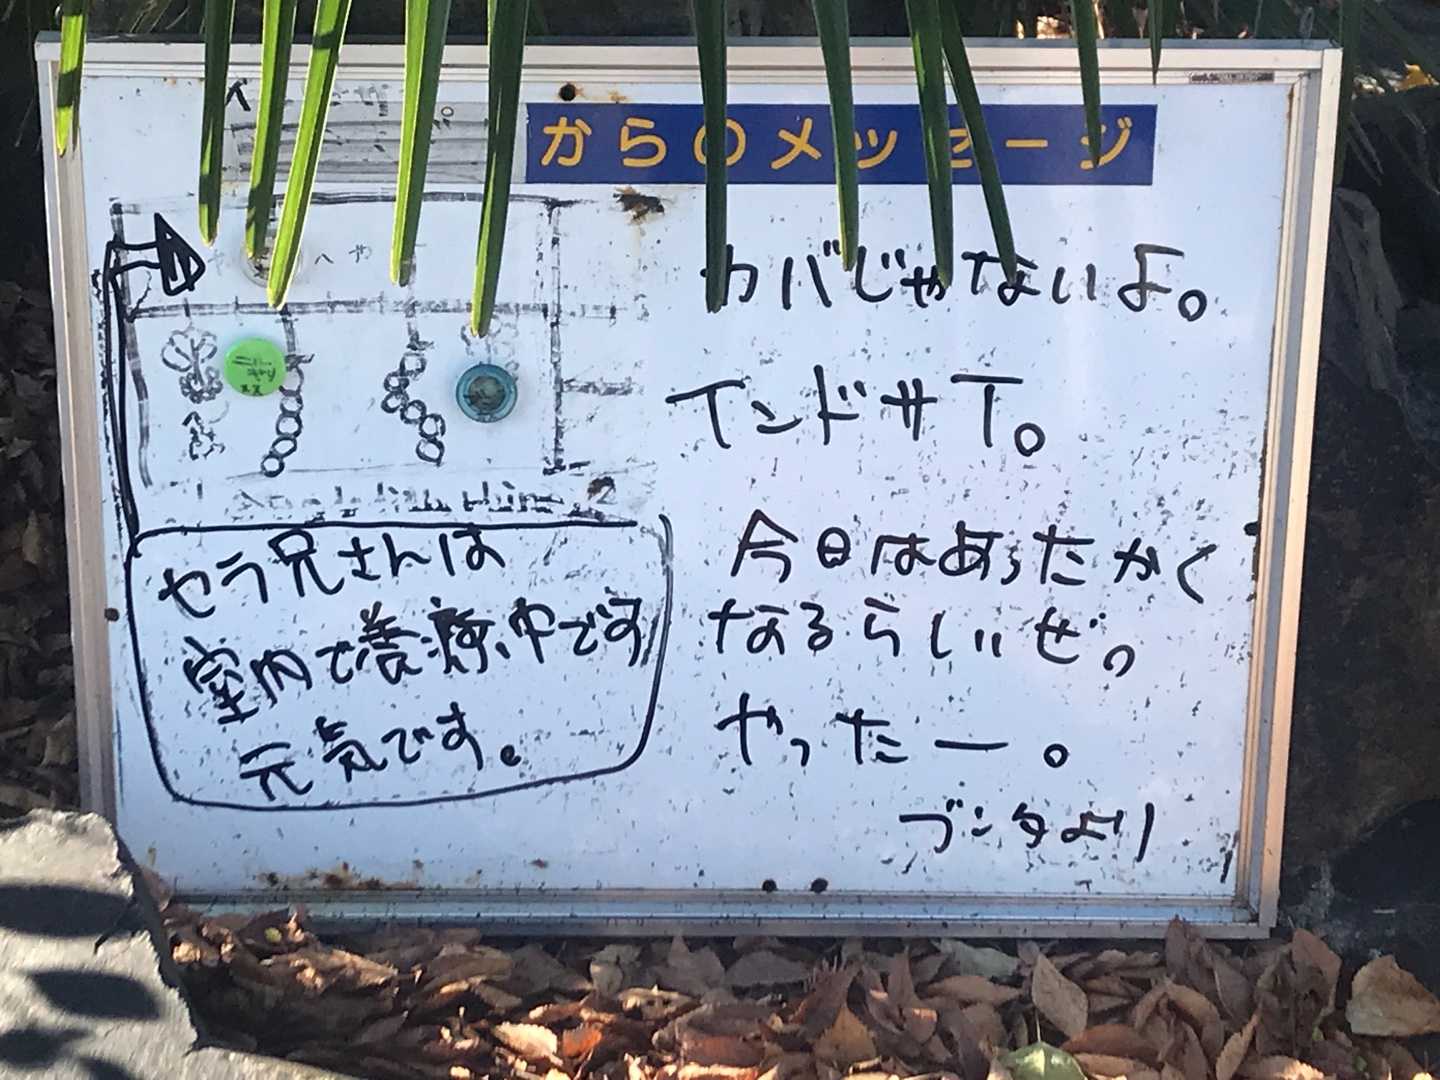 からのメッセージ
カバじゃないよ。
インドサイ。
今日はあったかく
なるらしいぜっ
やったー。
ブンタより
セラ兄さんは
室内で養療中です
元気です。